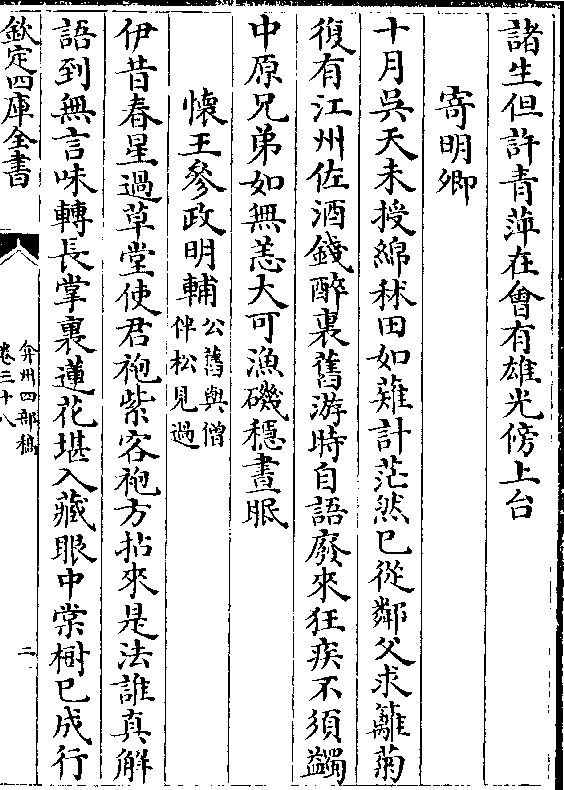 諸生但許青萍在會有雄光傍上台
寄明卿
十月吳天未授綿秫田如薙計茫然已從鄰父求籬菊
復有江州佐酒錢醉裏舊游時自語廢來狂疾不須蠲
中原兄弟如無恙大可漁磯穩晝眠
懷王參政明輔公舊與僧伴松見過
伊昔春星過草堂使君袍紫客袍方拈來是法誰真解
語到無言味轉長掌裏蓮花堪入藏眼中棠樹已成行
欽定四庫全書
弇州四部稿
卷三十八
二